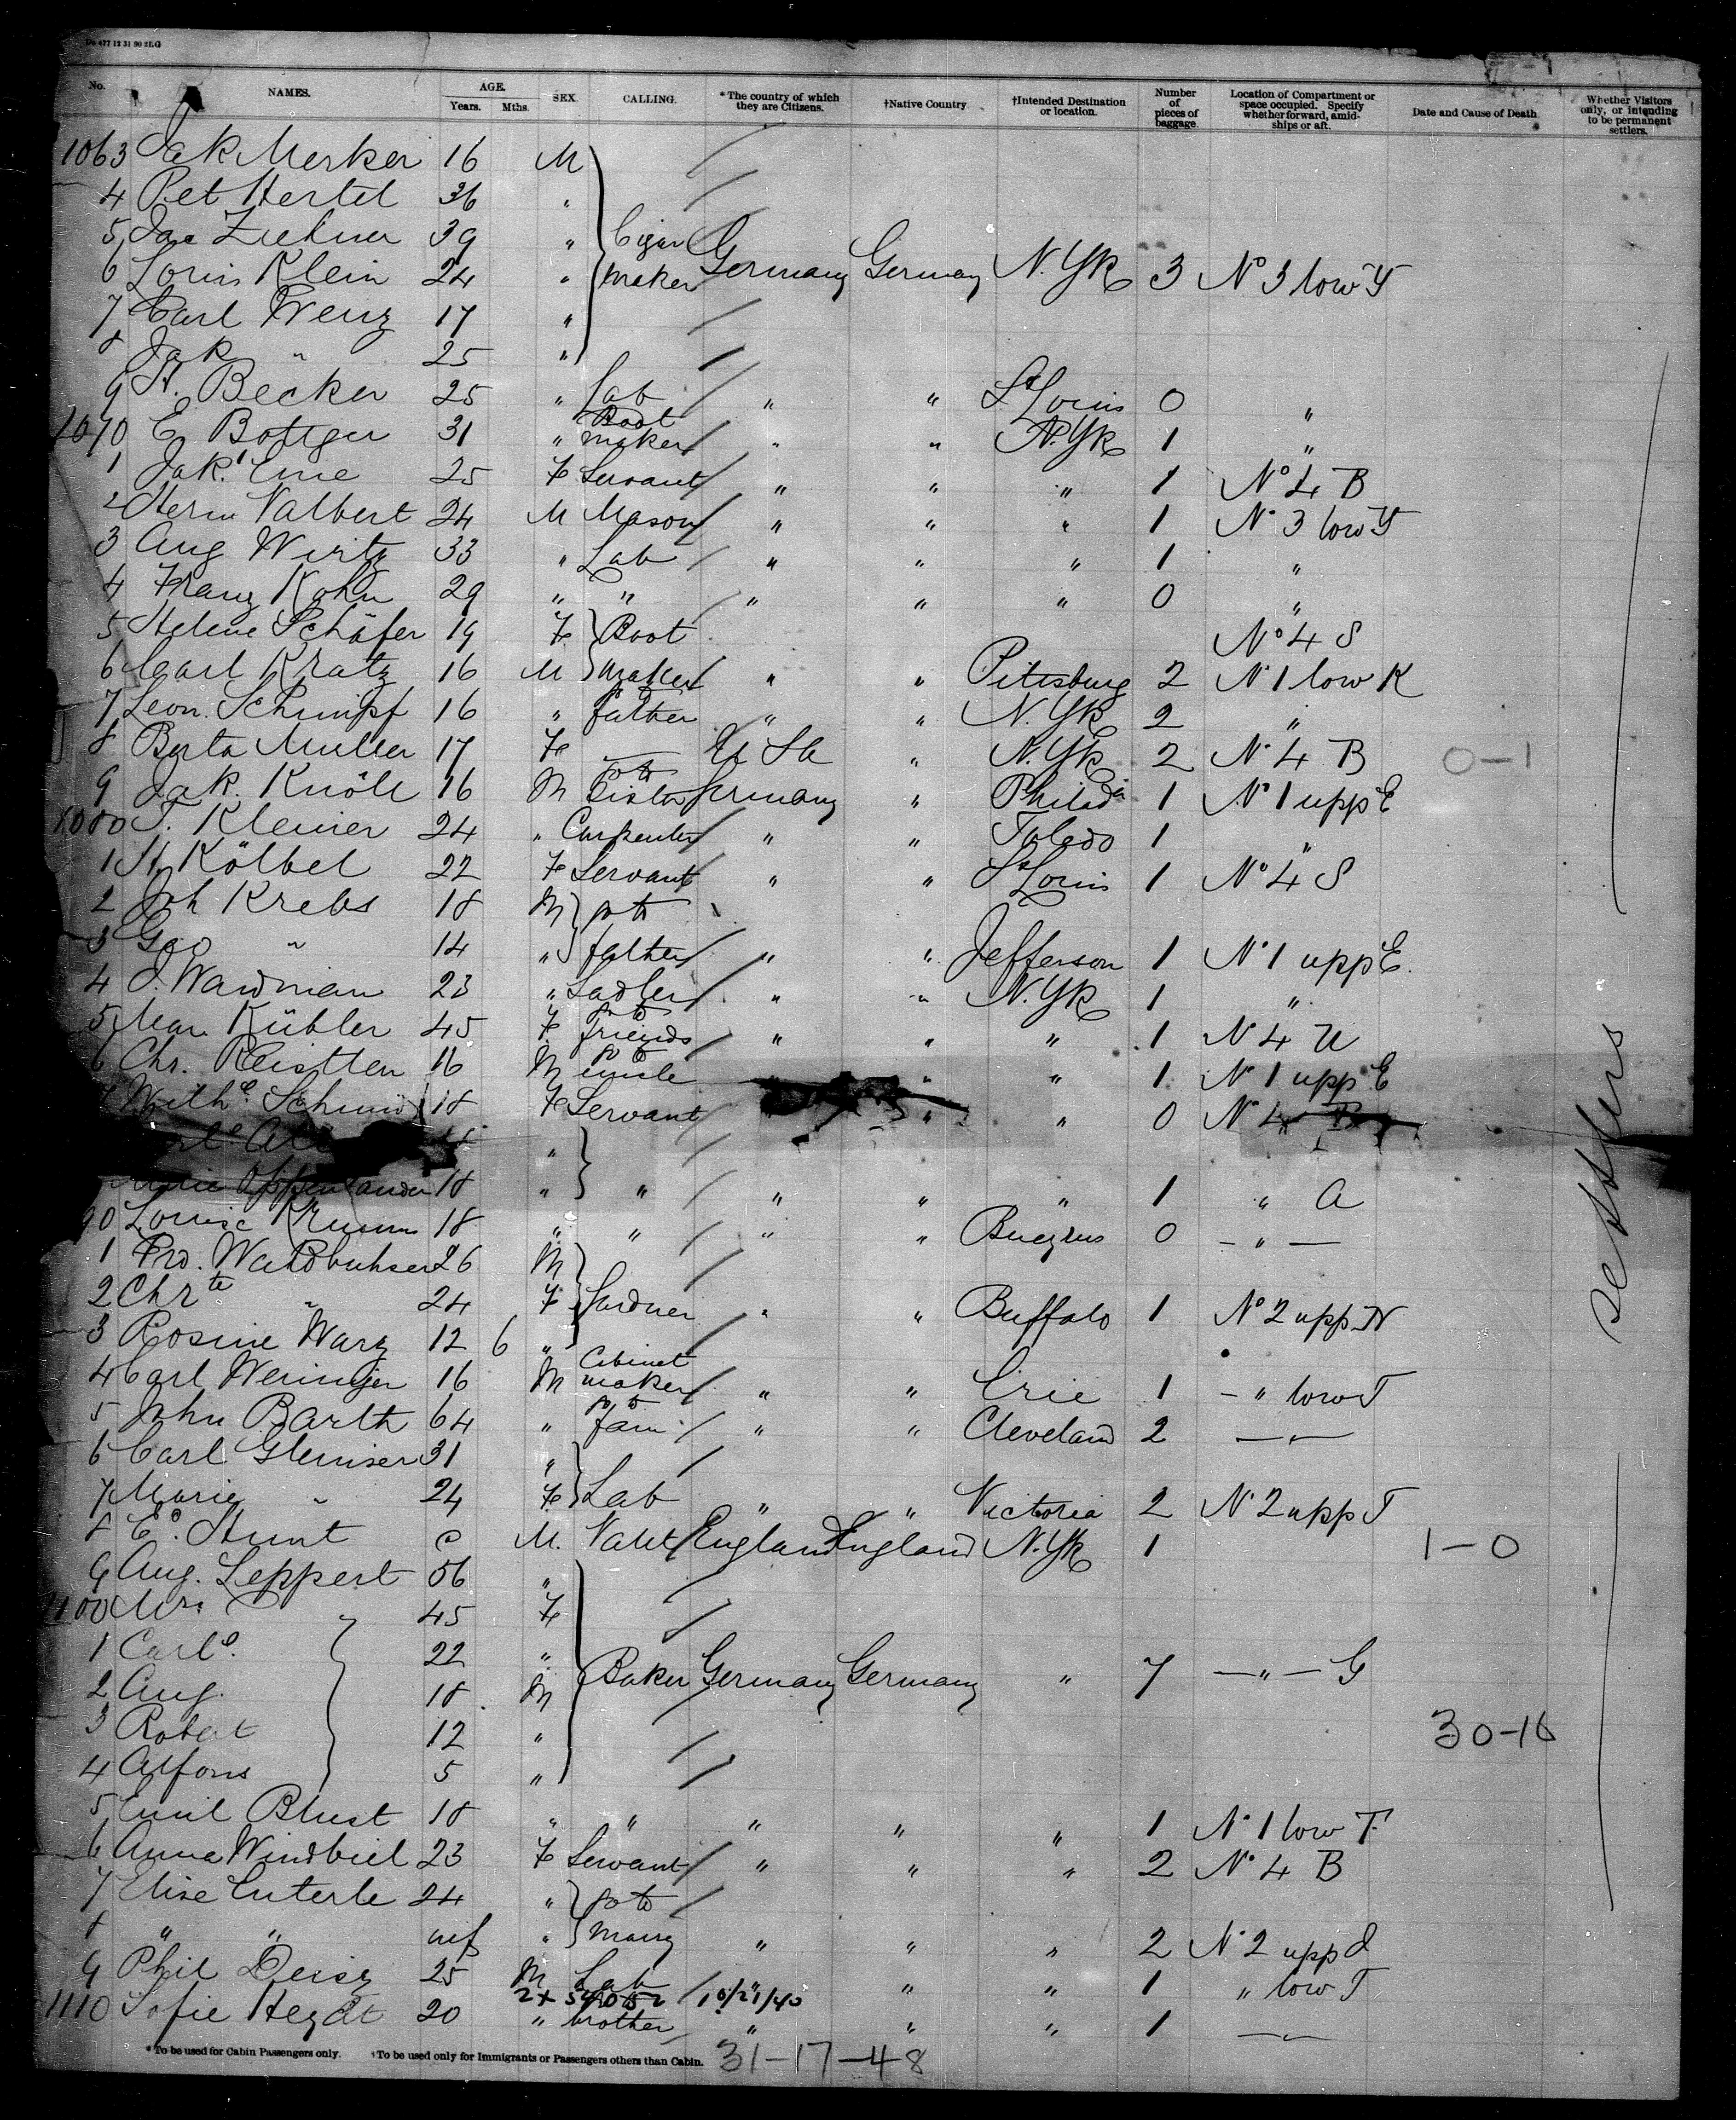 No. NAMES. AGE. Years. Mths. SEX. CALLING. *The country of which they are Citizens. †Native Country †Intended Destination or location. Number of pieces of baggage. Location of Compartment or space occupied. Specify whether forward, amidships or aft. Date and Cause of Death Whether Visitors only, or intending to be permanent settlers.
1063 Jak Merker 16 M
4 Pet Hertel 36 "
5 Jac 39 " Cigar
6 Louis Klein 24 " maker Germany Germany N. Yk 3 No 3 low
7 Carl Wenz 17 "
8 Jak " 25 "
9 H. Becker 25 " Lab " " St Louis 0 "
1070 E Bottger 31 " Boot maker " " N. Yk 1 "
1 Jak. 25 Fe Servant " " " 1 No 4 B
2 Herm Valbert 24 M Mason " " " 1 No 3 low
3 Aug Wirtz 33 " Lab " " " 1 "
4 Franz Kohn 29 " " " " " 0 "
5 Helene Schäfer 19 Fe Boot No 4 S
6 Carl Kratz 16 M maker " " Pittsburg 2 No 1 low K
7 Leon. Schimpf 16 " to father " " N. Yk 2 "
8 Berta Muller 17 Fe — U Sta " N. Yk 2 No 4 B 0-1
9 Jak. Knöll 16 M to Sister Germany " Philada 1 No 1 upp E
1080 T. Klemer 24 " Carpenter " " Toledo 1 "
1 H. Kölbel 22 Fe Servant " " St Louis 1 No 4 S
2 Joh Krebs 18 M go to
3 Geo " 14 " father " " Jefferson 1 No 1 upp E.
4 J. Wardman 23 " Sadler " " N. Yk 1 "
5 Mar. Kübler 45 Fe go to friends " " " 1 No 4 U
6 Chr. 16 M go to uncle " " 1 No 1 upp E
7 Wilhe 18 Fe Servant " " 0 No 4
"
Oppenlander 18 " " " " " 1 " A
90 Louise Krumm 18 " " " " Bucyrus 0 — " —
1 Frd. 26 M
2 Chrte " 24 Fe Gardner " " Buffalo 1 No 2 upp N
3 Rosine Warz 12 6 "
4 Carl Weninger 16 M Cabinet maker " " Erie 1 — " low T
5 John Barth 64 " go to fam " " Cleveland 2 — " —
6 Carl Glemser 31 "
7 Marie " 24 Fe Lab " " Victoria 2 No 2 upp T
8 E. Hunt M. Valet England England N. Yk 1 1-0
9 Aug. Leppert 56 "
1100 Mrs 45 Fe
1 Carle. 22 " Baker Germany Germany " 7 — " — G
2 Aug. 18 M
3 Robert 12 " 30-16
4 Alfons 5 "
5 Emil Blust 18 " " " " " 1 No 1 low T
6 Anna Windbiel 23 Fe Servant " " " 2 No 4 B
7 Elise Enterle 24 " go to
8 " " inf " marry " " " 2 No 2 upp J
9 Phil Deisz 25 M Lab " " " 1 " low T
10/21/40
1110 Sofie Heydt 20 " brother " " " 1 — " —
*To be used for Cabin Passengers only. †To be used only for Immigrants or Passengers others than Cabin. 31-17-48
settlers